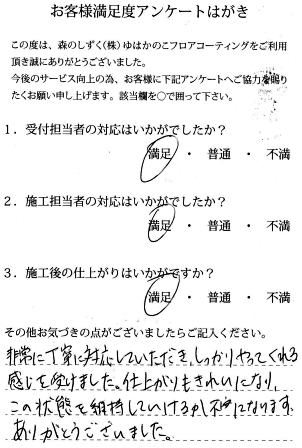 お客様満足度アンケートはがき
この度は、森のしずく(株)ゆはかのこフロアコーティングをご利用
頂き誠にありがとうございました。
今後のサービス向上の為、お客様に下記アンケートへご協力を賜り
たくお願い申し上げます。該当欄を○で囲って下さい。
1．受付担当者の対応はいかがでしたか？
満足 ・ 普通 ・ 不満
2．施工担当者の対応はいかがでしたか？
満足 ・ 普通 ・ 不満
3．施工後の仕上がりはいかがですか？
満足 ・ 普通 ・ 不満
その他お気づきの点がございましたらご記入ください。
非常に丁寧に対応していただき、しっかりやってくれる
感じを受けました。仕上がりもきれいになり、
この状態を維持していけるか不安になります。
ありがとうございました。